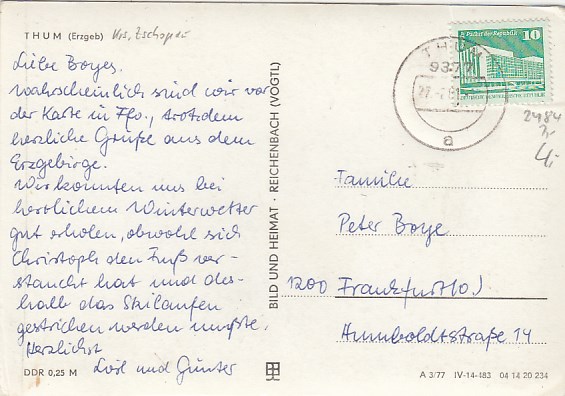 THUM (Erzgeb) Krs. Zschopau
Liebe Boyes.
wahrscheinlich sind wir vor
der Karte in Ffo., trotzdem
herzliche Grüße aus dem
Erzgebirge.
Wir konnten uns bei
herrlichem Winterwetter
gut erholen, obwohl sich
Christoph den Fuß ver-
staucht hat und des-
halb das Skilaufen
gestrichen werden mußte.
Herzlichst
Lösl und Günter
DDR 0,25 M
BILD UND HEIMAT · REICHENBACH (VOGTL)
THUM
9377
a
Palast der Republik 10
2484
4,-
Familie
Peter Boye
1200 Frankfurt(O.)
Humboldtstraße 14
A 3/77 IV-14-183 04 14 20 234